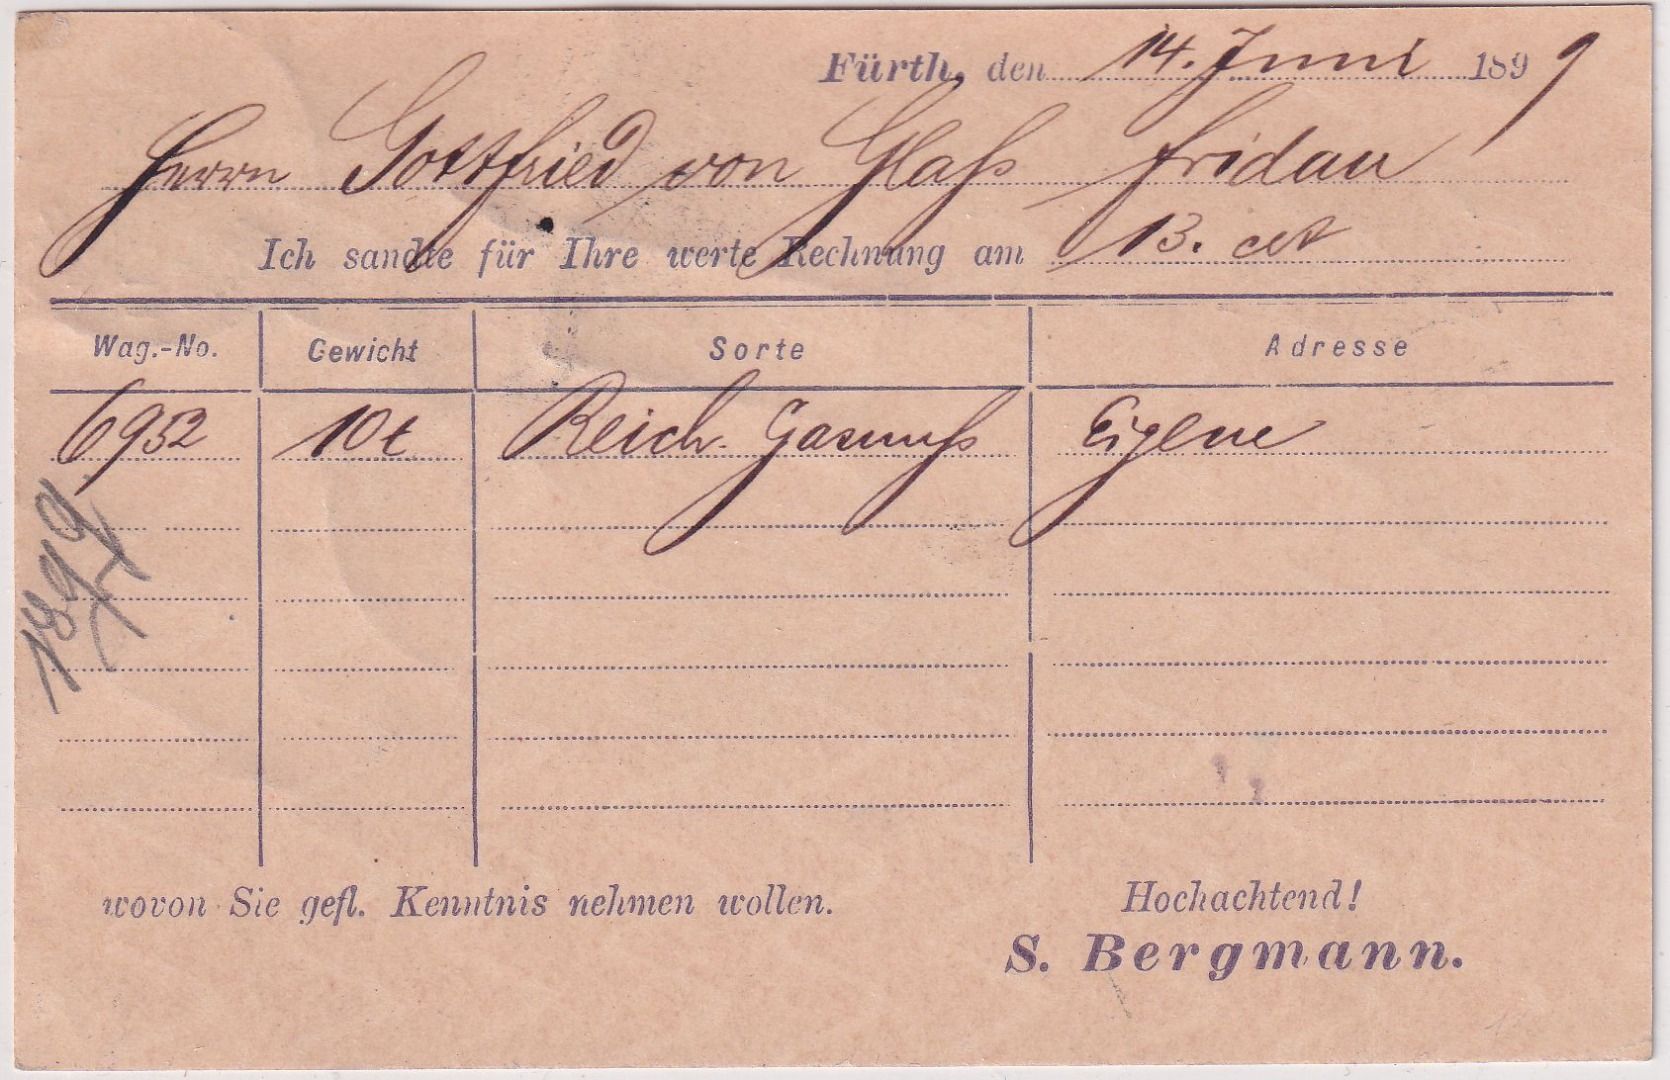 Fürth, den 14. Juni 1899
Herrn Gottfried von Glaß Fridau
Ich sandte für Ihre werte Rechnung am 13. crt
Wag.-No. Gewicht Sorte Adresse
6952 10t Reich. Gasnuß Eigene
1899
wovon Sie gefl. Kenntnis nehmen wollen.
Hochachtend!
S. Bergmann.